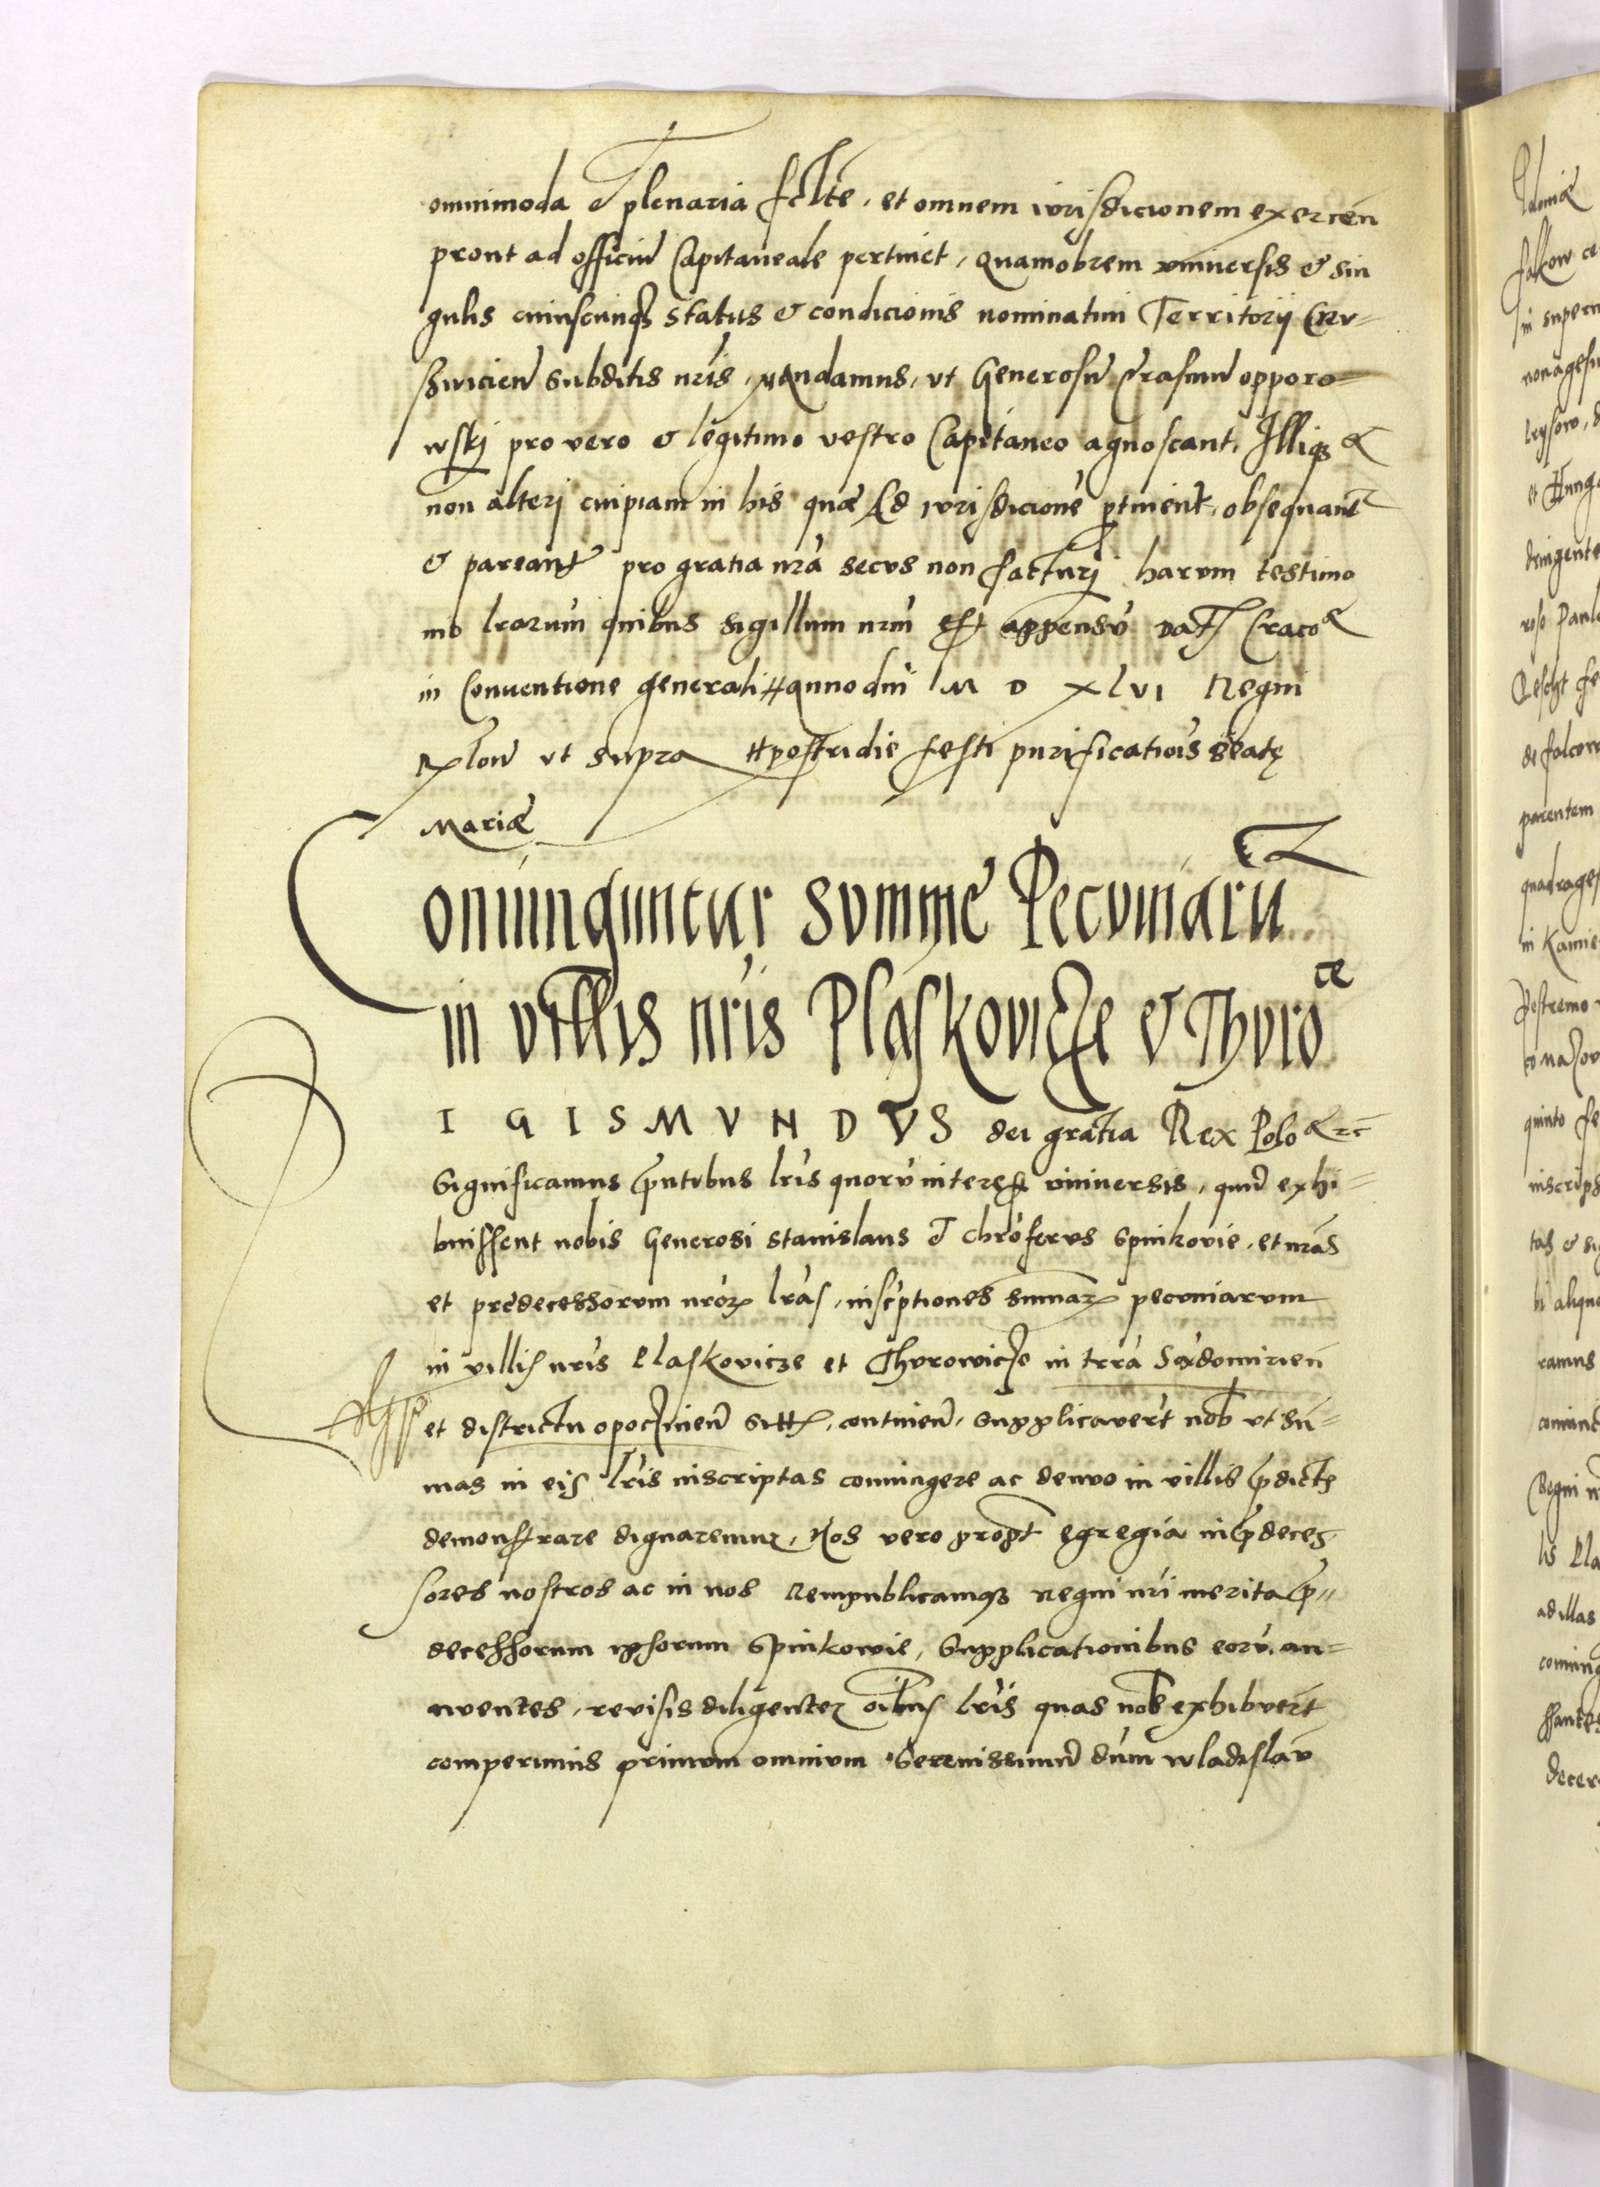 omnimoda et plenaria fclte, et omnem iurisdicionem exercen̄
prout ad officiū Capitaneale pertinet, quamobrem vniuersis et sin
gulis cuiuscunqȝ status et condicionis nominatim Territorij Cru-
szvicien̄ subditis nr̄is, mandamus, vt Generosū Erasmū opporo-
wskj pro vero et legitimo vestro Capitaneo agnoscant, Illiqȝ et
non alterj cuipiam in his quæ Ad iurisdicionē ptinent, obsequant̄
et pareant, pro gratia nr̄a secvs non facturj harvm testimo
nio lr̄arum quibus sigillum nr̄m est appensū Dat̄ Craco
in Conuentione generali # anno dn̄i M D XLVI Regni
vero ut supra # postridie festi purificatiōis Beatę
Mariæ
Coniunguntur svmme Pecvniarū
in villis nr̄is Plaskovicze et Thvro
ce
I G I S M V N D V S dei gratia Rex Polo etc
Significamus pn̄tibus lr̄is quorū interest vniuersis, quū exhi-
buissent nobis Generosi Stanislaus et Chrōfervs Spinkovie, et nr̄as
et predecessorvm nr̄oꝝ lr̄as, inscptiones summaꝝ pecvniarvm
in villis nr̄is Plaskovicze et Thvrowicze in trr̄a Sādomirien̄
et districtu opocznien̄ sitis, continen̄, Supplicavert̄ nob̄ vt sū-
mas in eis lr̄is inscriptas coniungere ac denvo in villis pdictis
demonstrare dignaremur, Nos vero propt̄ egregia in pdeces
sores nostros ac in nos Rempublicamqȝ Regni nr̄i merita p-
decessorum ipsorum Spinkowie, Supplicationibus eorū an-
nventes, revisis diligenter oībus lr̄is quas nob̄ exhibvert̄
comperimus primvm omnivm Serenissimū dn̄m Wladislaū